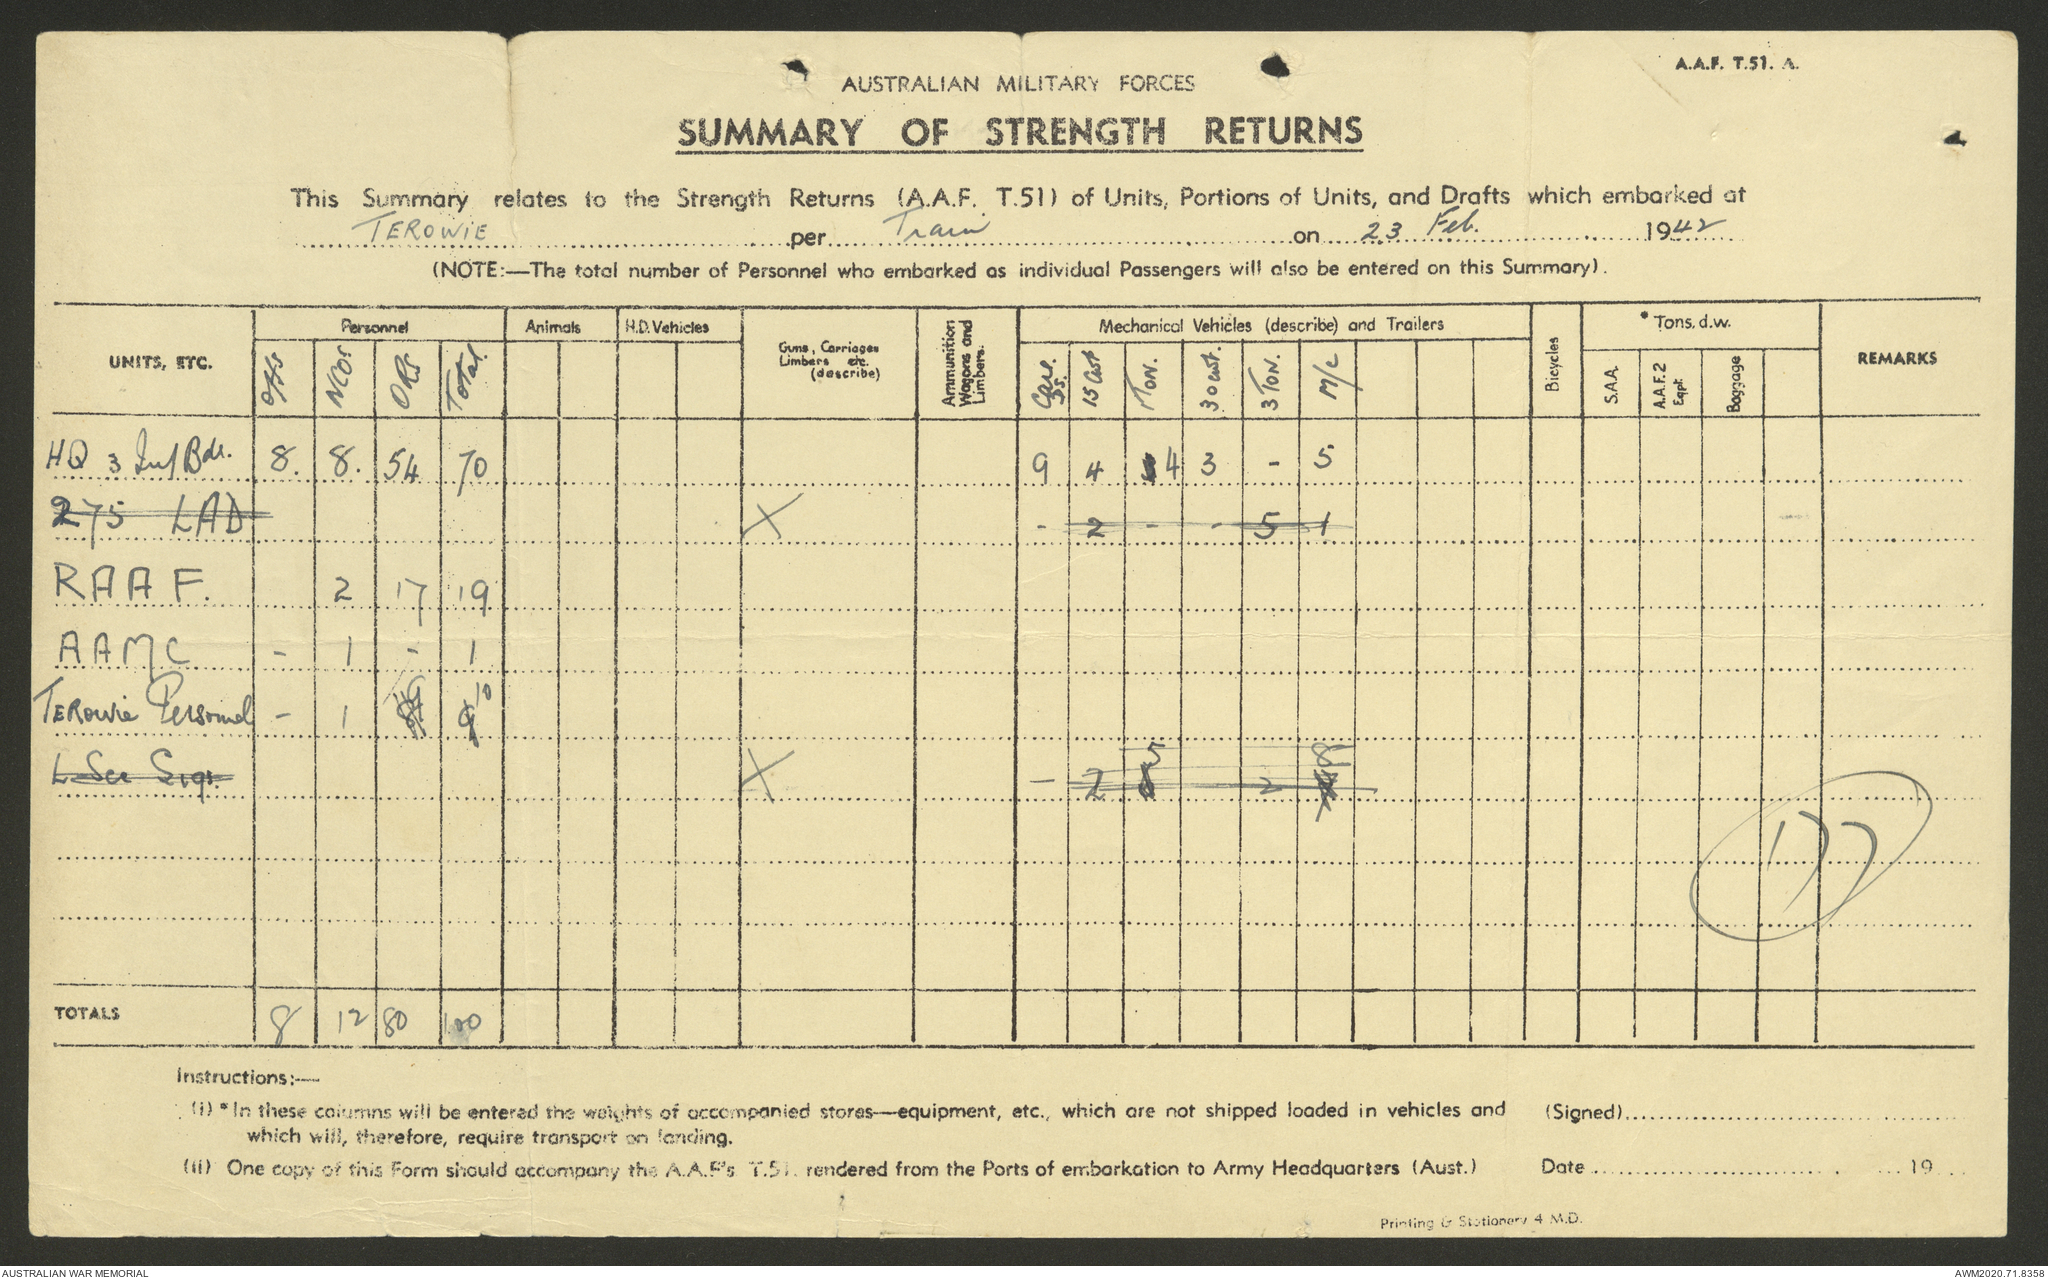 A.A.F. T.51. A.
AUSTRALIAN MILITARY FORCES
SUMMARY OF STRENGTH RETURNS
This Summary relates to the Strength Returns (A.A.F. T.51) of Units, Portions of Units, and Drafts which embarked at
TEROWIE per Train on 23 Feb. 1942
(NOTE:—The total number of Personnel who embarked as individual Passengers will also be entered on this Summary).
UNITS, ETC. Personnel Animals H.D. Vehicles Guns, Carriages Limbers etc. (describe) Ammunition Wagons and Limbers. Mechanical Vehicles (describe) and Trailers Bicycles * Tons. d.w. REMARKS
Offs NCOs ORs Total Cars 15 Cwt 1 Ton. 30 cwt. 3 Ton. M/c S.A.A. A.A.F.2 Eqpt. Baggage
HQ 3 Inf Bde. 8. 8. 54 70 9 4 4 3 - 5
275 LAD X - 2 - - 5 1
RAAF. 2 17 19
AAMC - 1 - 1
TEROWIE Personnel - 1 9 10
L Sec Sigs. X - 2 5 2 8
177
TOTALS 8 12 80 100
Instructions:—
(i) *In these columns will be entered the weights of accompanied stores—equipment, etc., which are not shipped loaded in vehicles and
which will, therefore, require transport on landing.
(Signed)
(ii) One copy of this Form should accompany the A.A.F's. T.51. rendered from the Ports of embarkation to Army Headquarters (Aust.)
Date 19
Printing & Stationery 4 M.D.
AUSTRALIAN WAR MEMORIAL
AWM2020.71.8358